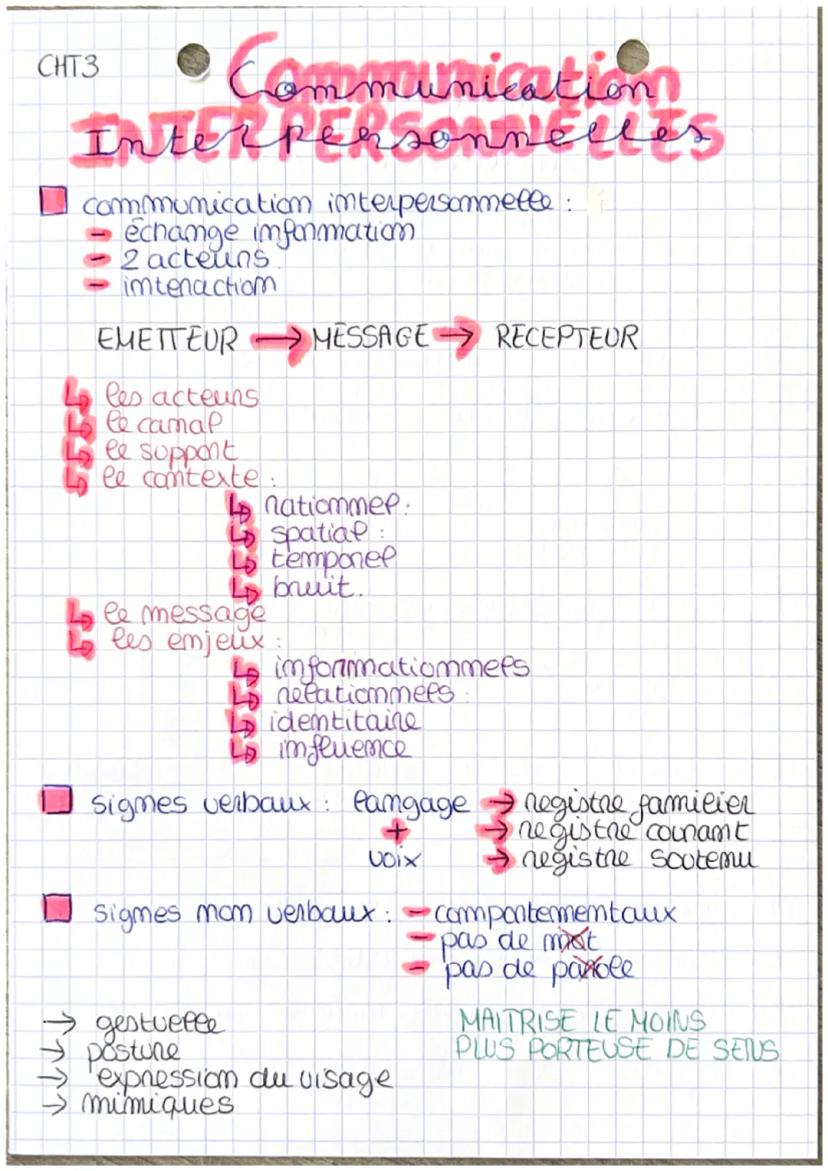 CHT3
Communication
INTERPERSONNELLES
communication interpersonnelle :
- échange information
- 2 acteurs.
- interaction
EMETTEUR → MESSAGE → RECEPTEUR
↳ les acteurs
↳ le canal
↳ le support
↳ le contexte :
↳ nationnel :
↳ spatial :
↳ temporel
↳ bruit.
↳ le message
↳ les enjeux :
↳ informationnels
↳ relationnels :
↳ identitaire
↳ influence
signes verbaux : langage → registre familier
+ → registre courant
voix → registre soutenu
signes non verbaux : - comportementaux
- pas de mot
- pas de parole
→ gestuelle
→ posture
→ expression du visage
→ mimiques
MAITRISE LE MOINS
PLUS PORTEUSE DE SENS